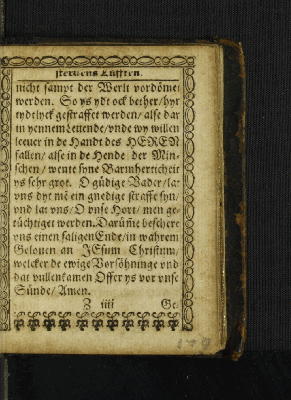 steruens Lüfften.
nicht sampt der Werlt vordömet
werden. So ys ydt ock bether/ hyr
tydtlyck gestraffet werden/ alse dar
in yennem Leuende/ vnde wy willen
leeuer in de Handt des HEREN
fallen/ alse in de Hende der Min-
schen/ wente syne Barmherticheit
ys sehr grot. O güdige Vader/ lat
vns dyt me ein gnedige straffe syn/
vnd lat vns/ O vnse Hort/ men ge-
tüchtiget werden. Darüme beschere
vns einen saligen Ende/ in wahrem
Gelouen an JEsum Christum/
welcker de ewige Vorsöhninge vnd
dat vullenkamen Offer ys vor vnse
Sünde/ Amen.
Z iiii Ge-